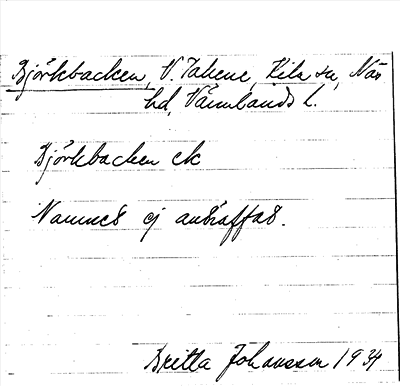 Björkbacken, V. Takene, Kila sn, Näs
hd, Värmlands l.
Björkbacken ek
Namnet ej anträffat.
Britta Johansson 1934